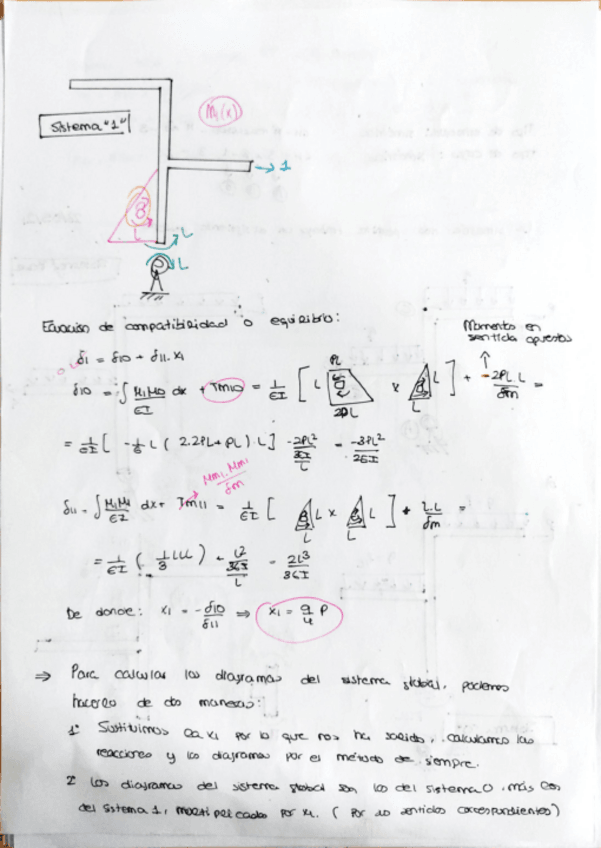 M1(x)
Sistema "1"
→ 1
8
L
L
L
Ecuación de compatibilidad o equilibrio:
Momento en
sentido opuesto
0 = δ1 = δ10 + δ11 · x1
δ10 = ∫ M1M0/EI dx + Tm10 = 1/EI [ L PL 2PL × L L ] + -2PL·L/δm =
= 1/EI [ -1/6 L ( 2·2PL + PL ) · L ] -2PL²/(3EI/L) = -3PL³/2EI
Mm1·Mm1/δm
δ11 = ∫ M1M1/EI dx + Tm11 = 1/EI [ L L × L L ] + L·L/δm =
= 1/EI ( 1/3 LLL ) + L²/(3EI/L) = 2L³/3EI
De donde: x1 = -δ10/δ11 ⇒ x1 = 9/4 P
⇒ Para calcular los diagramas del sistema global, podemos
hacerlo de dos maneras:
1º Sustituimos la x1 por lo que nos ha salido, calculamos las
reacciones y los diagramas por el método de siempre.
2 Los diagramas del sistema global son los del sistema 0, más los
del sistema 1, multiplicados por x1. ( Por sentidos correspondientes)